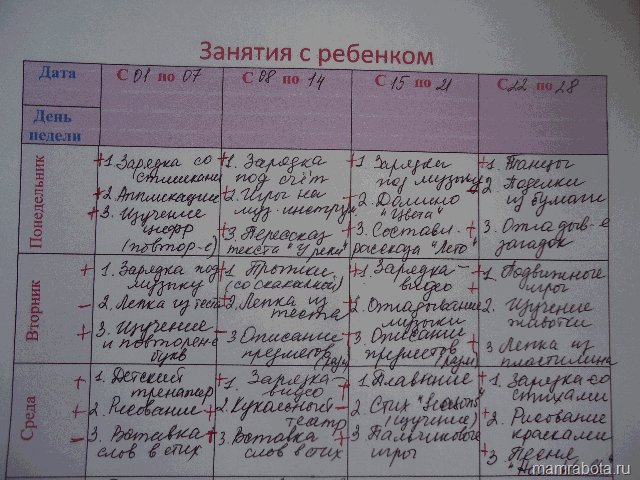 Занятия с ребенком
Дата
С 01 по 07
С 08 по 14
С 15 по 21
С 22 по 28
День
недели
Понедельник
+ 1. Зарядка со
стишками
+ 2. Аппликация
+ 3. Изучение
цифр
(повтор-е)
+ 1. Зарядка
под счёт
- 2. Игры на
муз. инструм.
+ 3. Пересказ
текста "У реки"
+ 1. Зарядка
под музыку
- 2. Домино
"Цвета"
+ 3. Составл.
рассказа "Лето"
+ 1. Танцы
2. Поделки
из бумаги
3. Отгадыв-е
загадок
Вторник
+ 1. Зарядка под
музыку
- 2. Лепка из теста
+ 3. Изучение
и повторение
букв
+ 1. Прыжки
(со скакалкой)
+ 2. Лепка из
теста
- 3 Описание
предметов
+ 1. Зарядка-
видео
+ 2. Отгадывание
музыки
3. Описание
предметов
+ 1. Подвижные
игры
2. Изучение
3 Лепка из
пластилина
Среда
+ 1. Детский
тренажер
+ 2. Рисование
- 3. Вставка
слов в стих
+ 1. Зарядка-
видео
+ 2. Кукольный
театр
3. Вставка
слов в стих
+ 1. Плавание
- 2. Стих
(изучение)
+ 3. Пальчиковые
игры
+ 1. Зарядка со
стихами
+ 2. Рисование
красками
+ 3. Песня
mamrabota.ru